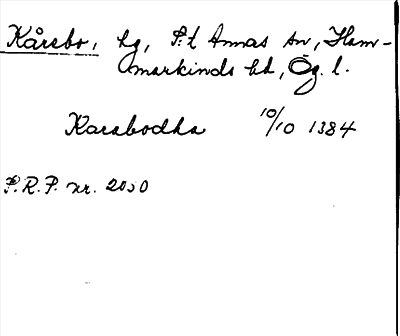 Kårebo, hg, S:t Annas sn, Ham-
markinds hd, Ög. l.
Karabodha 10/10 1384
S.R.P. nr. 2030